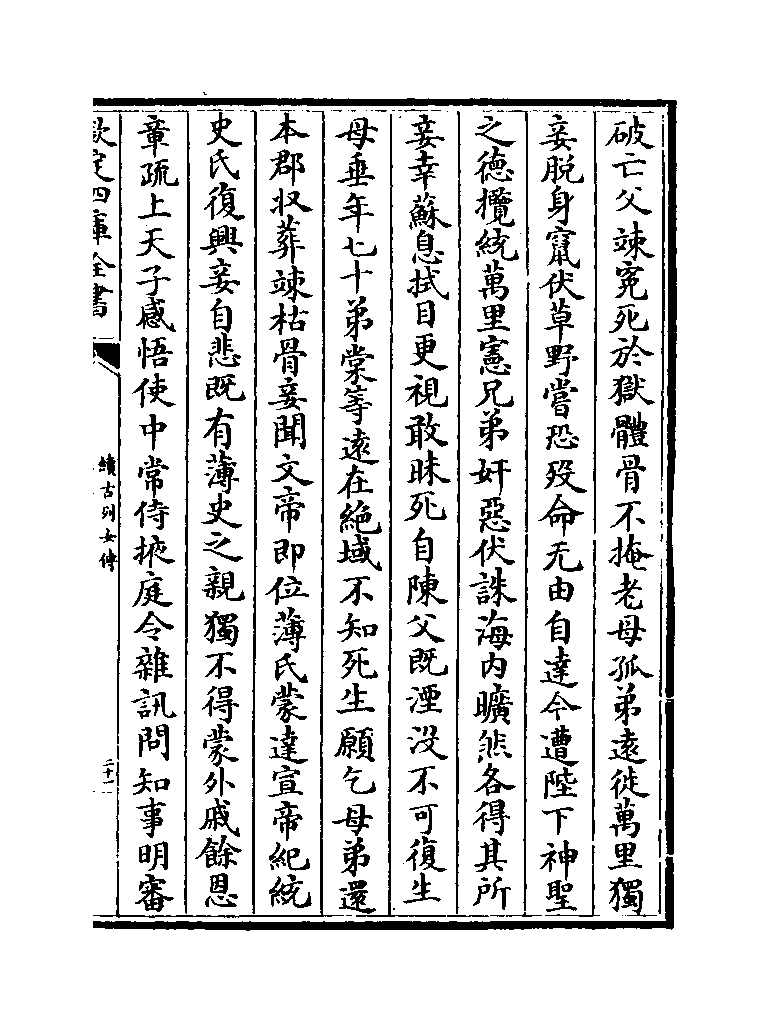 破亡父竦寃死於獄體骨不掩老母孤弟逺徙萬里獨
妾脱身竄伏草野嘗恐歿命无由自達今遭陛下神聖
之德攬統萬里憲兄弟奸惡伏誅海内曠然各得其所
妾幸蘇息拭目更視敢昧死自陳父既湮没不可復生
母垂年七十弟棠等逺在絶域不知死生願乞母弟還
本郡収葬竦枯骨妾聞文帝即位薄氏蒙達宣帝紀統
史氏復興妾自悲既有薄史之親獨不得蒙外戚餘恩
章疏上天子感悟使中常侍掖庭令雜訊問知事明審
欽定四庫全書
續古列女傳
二十一